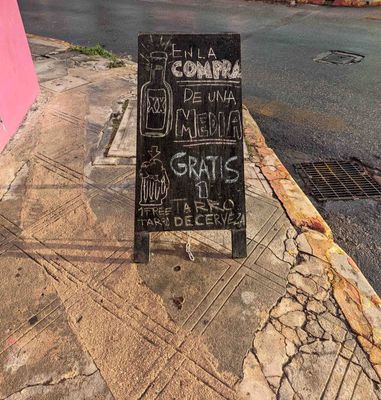 EN LA
COMPRA
DE UNA
MEDIA
GRATIS
1
TARRO
DE CERVEZA
1 FREE
TARRO